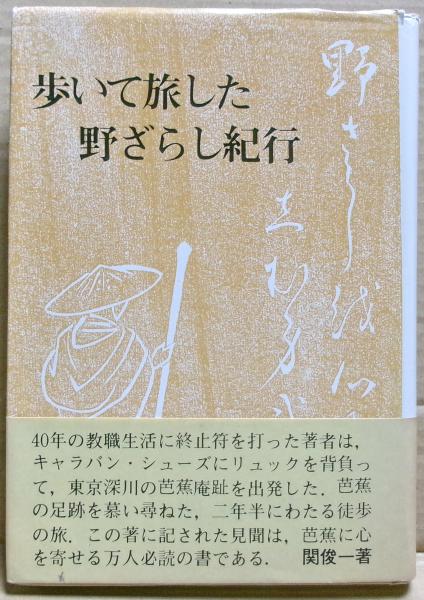 歩いて旅した
野ざらし紀行
野ざらしを心に
40年の教職生活に終止符を打った著者は,
キャラバン・シューズにリュックを背負っ
て,東京深川の芭蕉庵趾を出発した.芭蕉
の足跡を慕い尋ねた,二年半にわたる徒歩
の旅.この著に記された見聞は,芭蕉に心
を寄せる万人必読の書である. 関俊一著